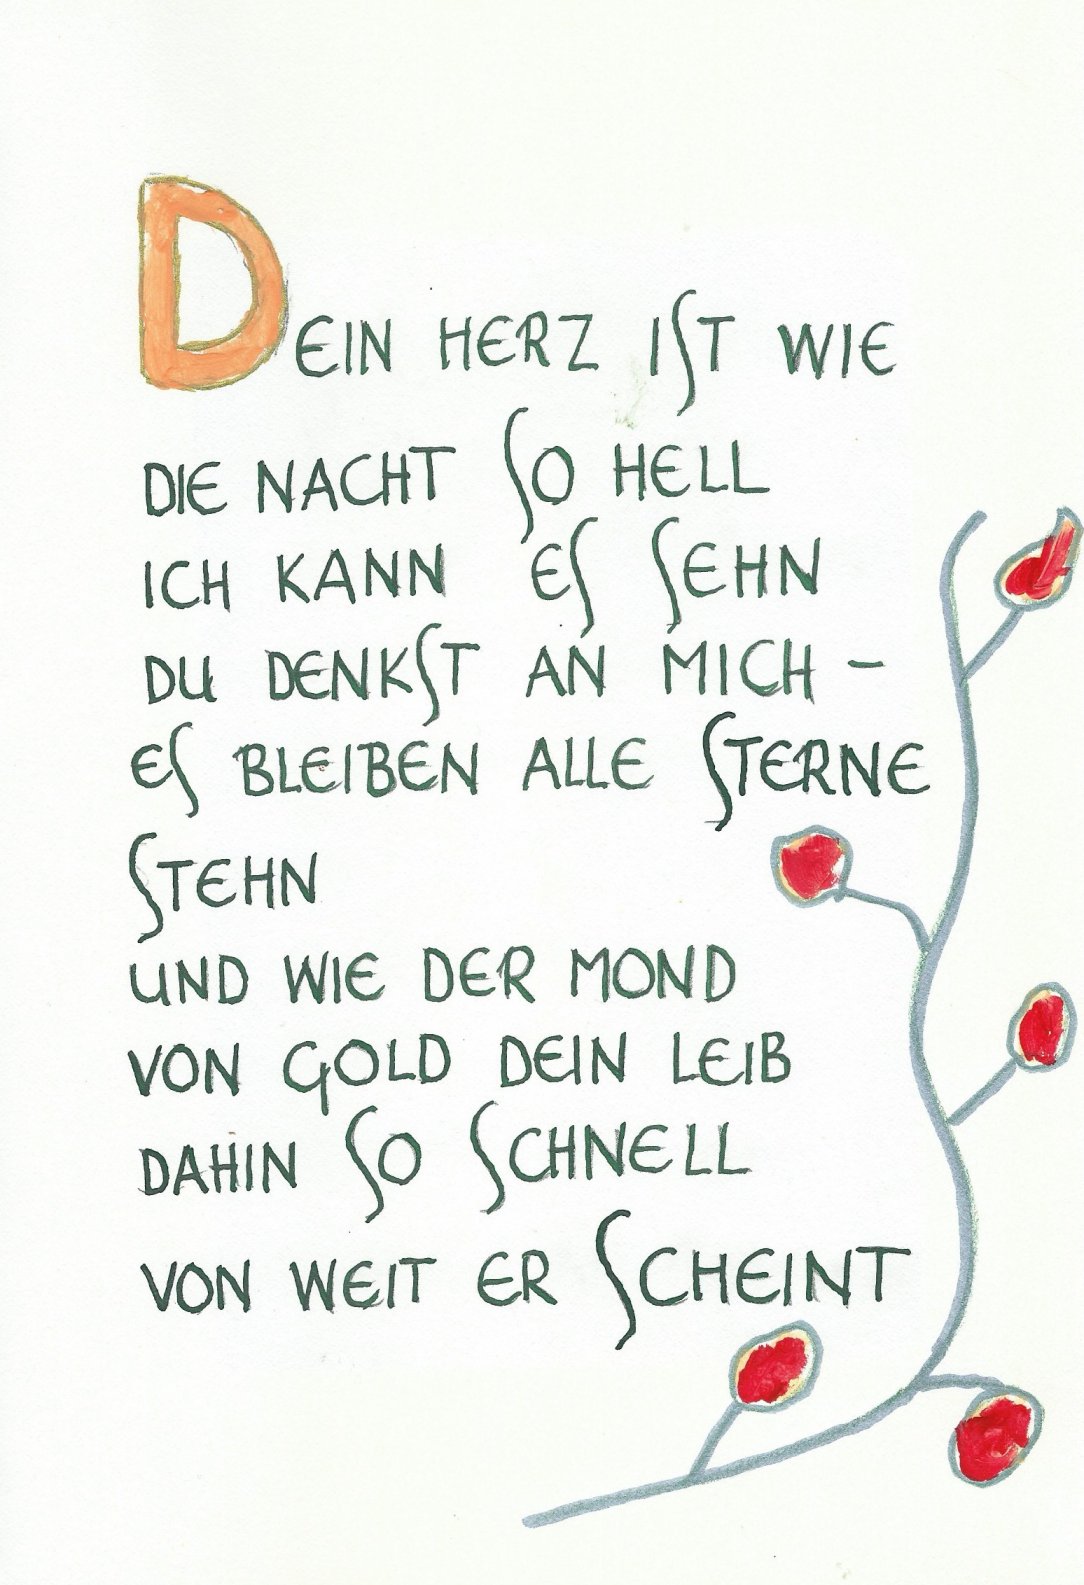 DEIN HERZ IST WIE
DIE NACHT SO HELL
ICH KANN ES SEHN
DU DENKST AN MICH –
ES BLEIBEN ALLE STERNE
STEHN
UND WIE DER MOND
VON GOLD DEIN LEIB
DAHIN SO SCHNELL
VON WEIT ER SCHEINT